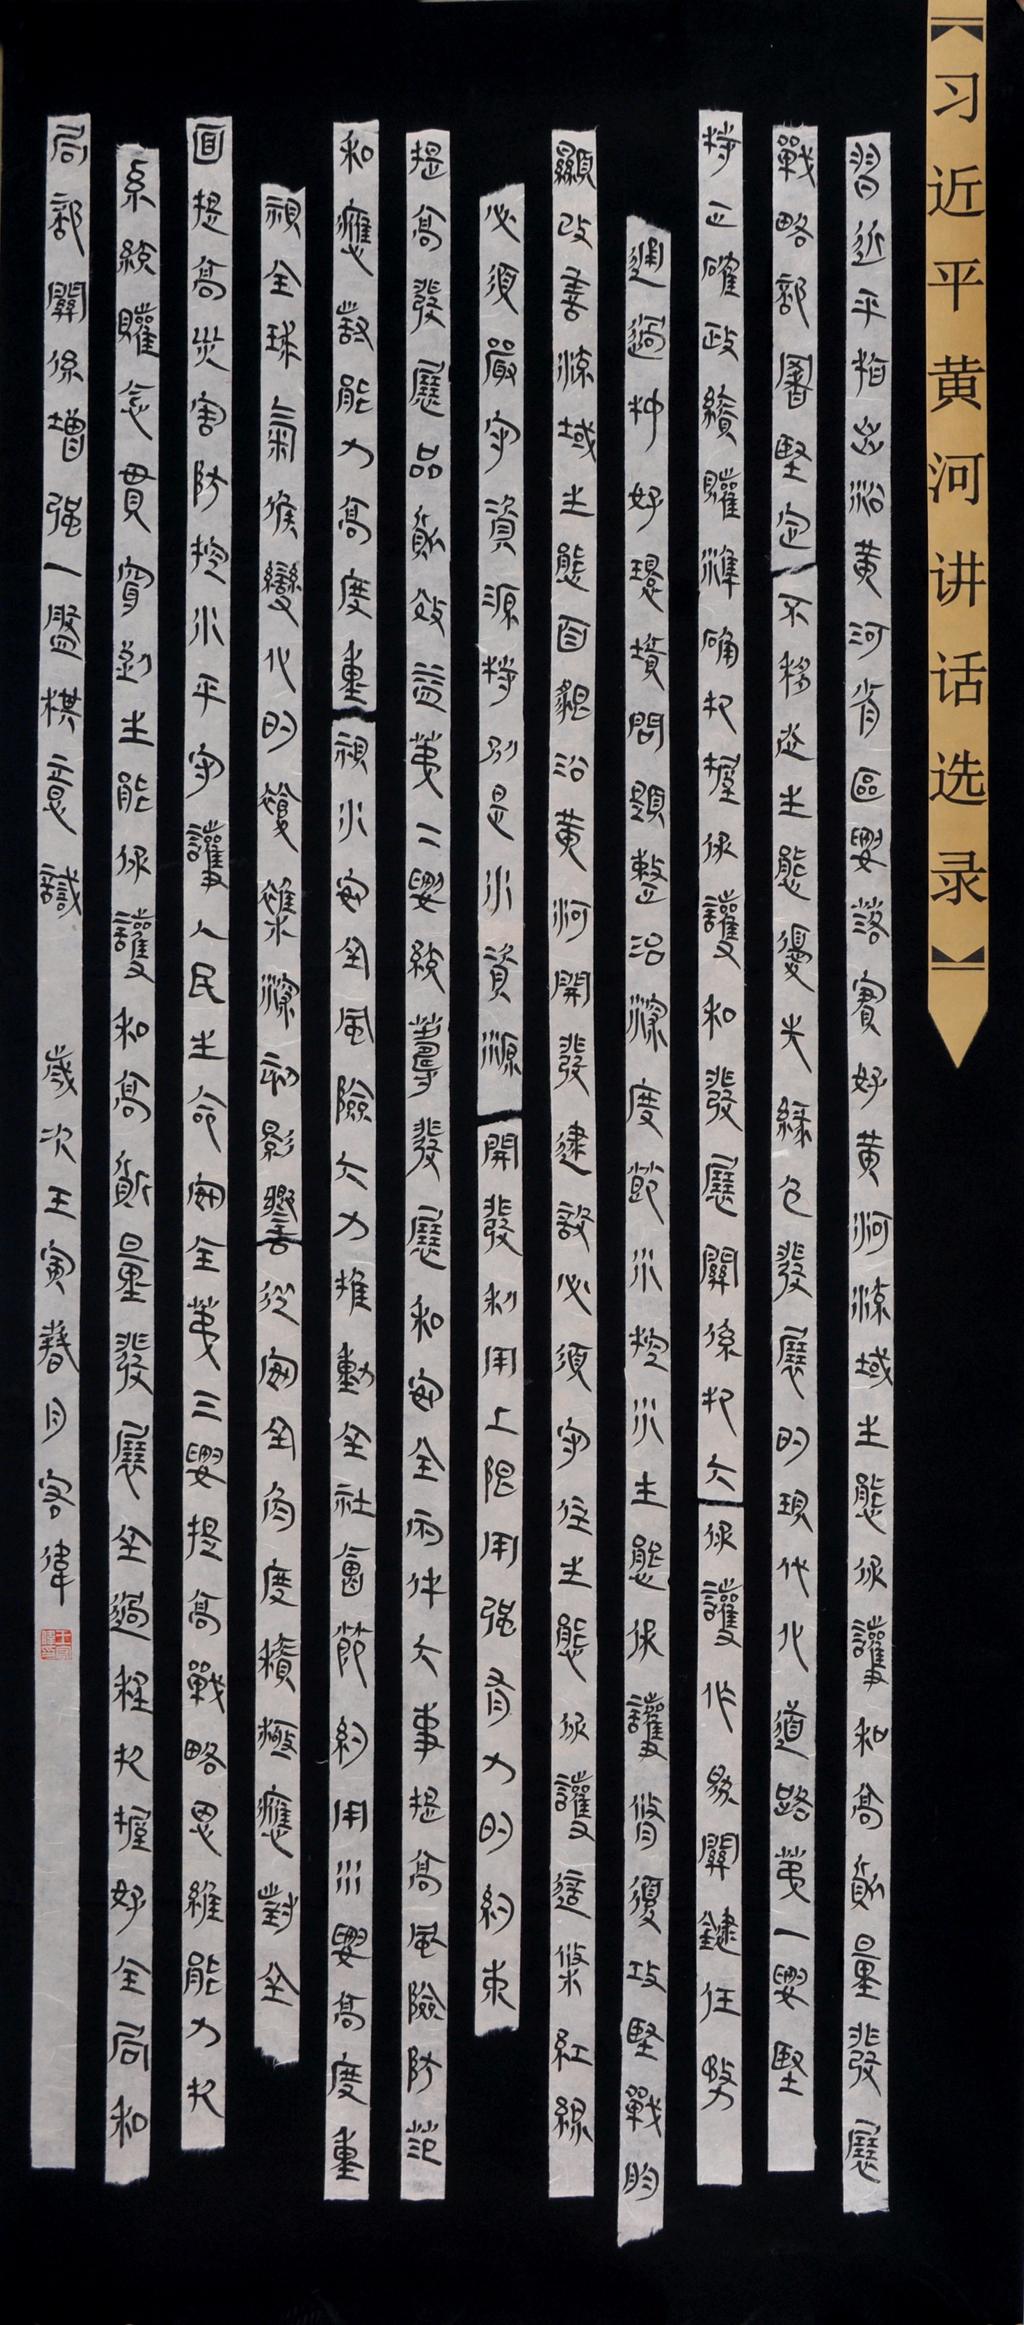 【习近平黄河讲话选录】
習近平指出沿黄河省區要落實好黄河流域生態保護和高質量發展
戰略部署堅定不移走生態優先綠色發展的現代化道路第一要堅
持正確政績觀準确把握保護和發展關係把大保護作為關鍵任務
通過打好環境問題整治深度節水控水生態保護修復攻堅戰明
顯改善流域生態面貌沿黄河開發建設必須守住生態保護這條紅線
必須嚴守資源特別是水資源開發利用上限用强有力的約束
提高發展品質效益第二要統籌發展和安全兩件大事提高風險防范
和應對能力高度重視水安全風險大力推動全社會節約用水要高度重
視全球氣候變化的複雜深刻影響從安全角度積極應對全
面提高災害防控水平守護人民生命安全第三要提高戰略思維能力把
系統觀念貫穿到生態保護和高質量發展全過程把握好全局和
局部關係增强一盤棋意識 歲次壬寅春月 客偉